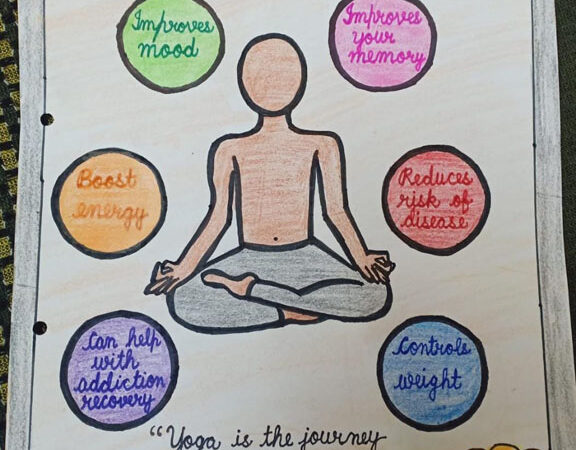 Improves
mood
Improves
your
memory
Boost
energy
Reduces
risk of
disease
Can help
with
addiction
recovery
Controls
weight
“Yoga is the journey